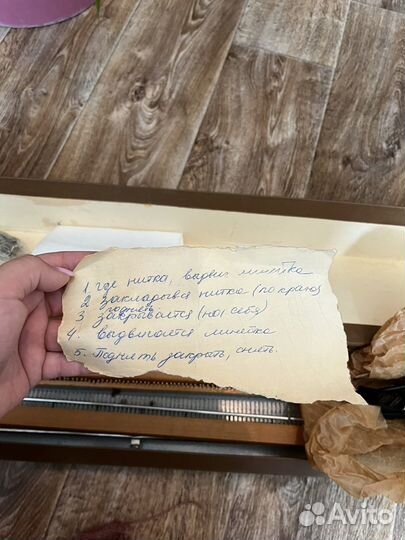 1. где нитка, выдвиг линейка
2 закладывся нитка (по краю)
поднять
3 закрывается (на себя)
4. выдвигается линейка
5. Поднять закрыть, снять.
Avito